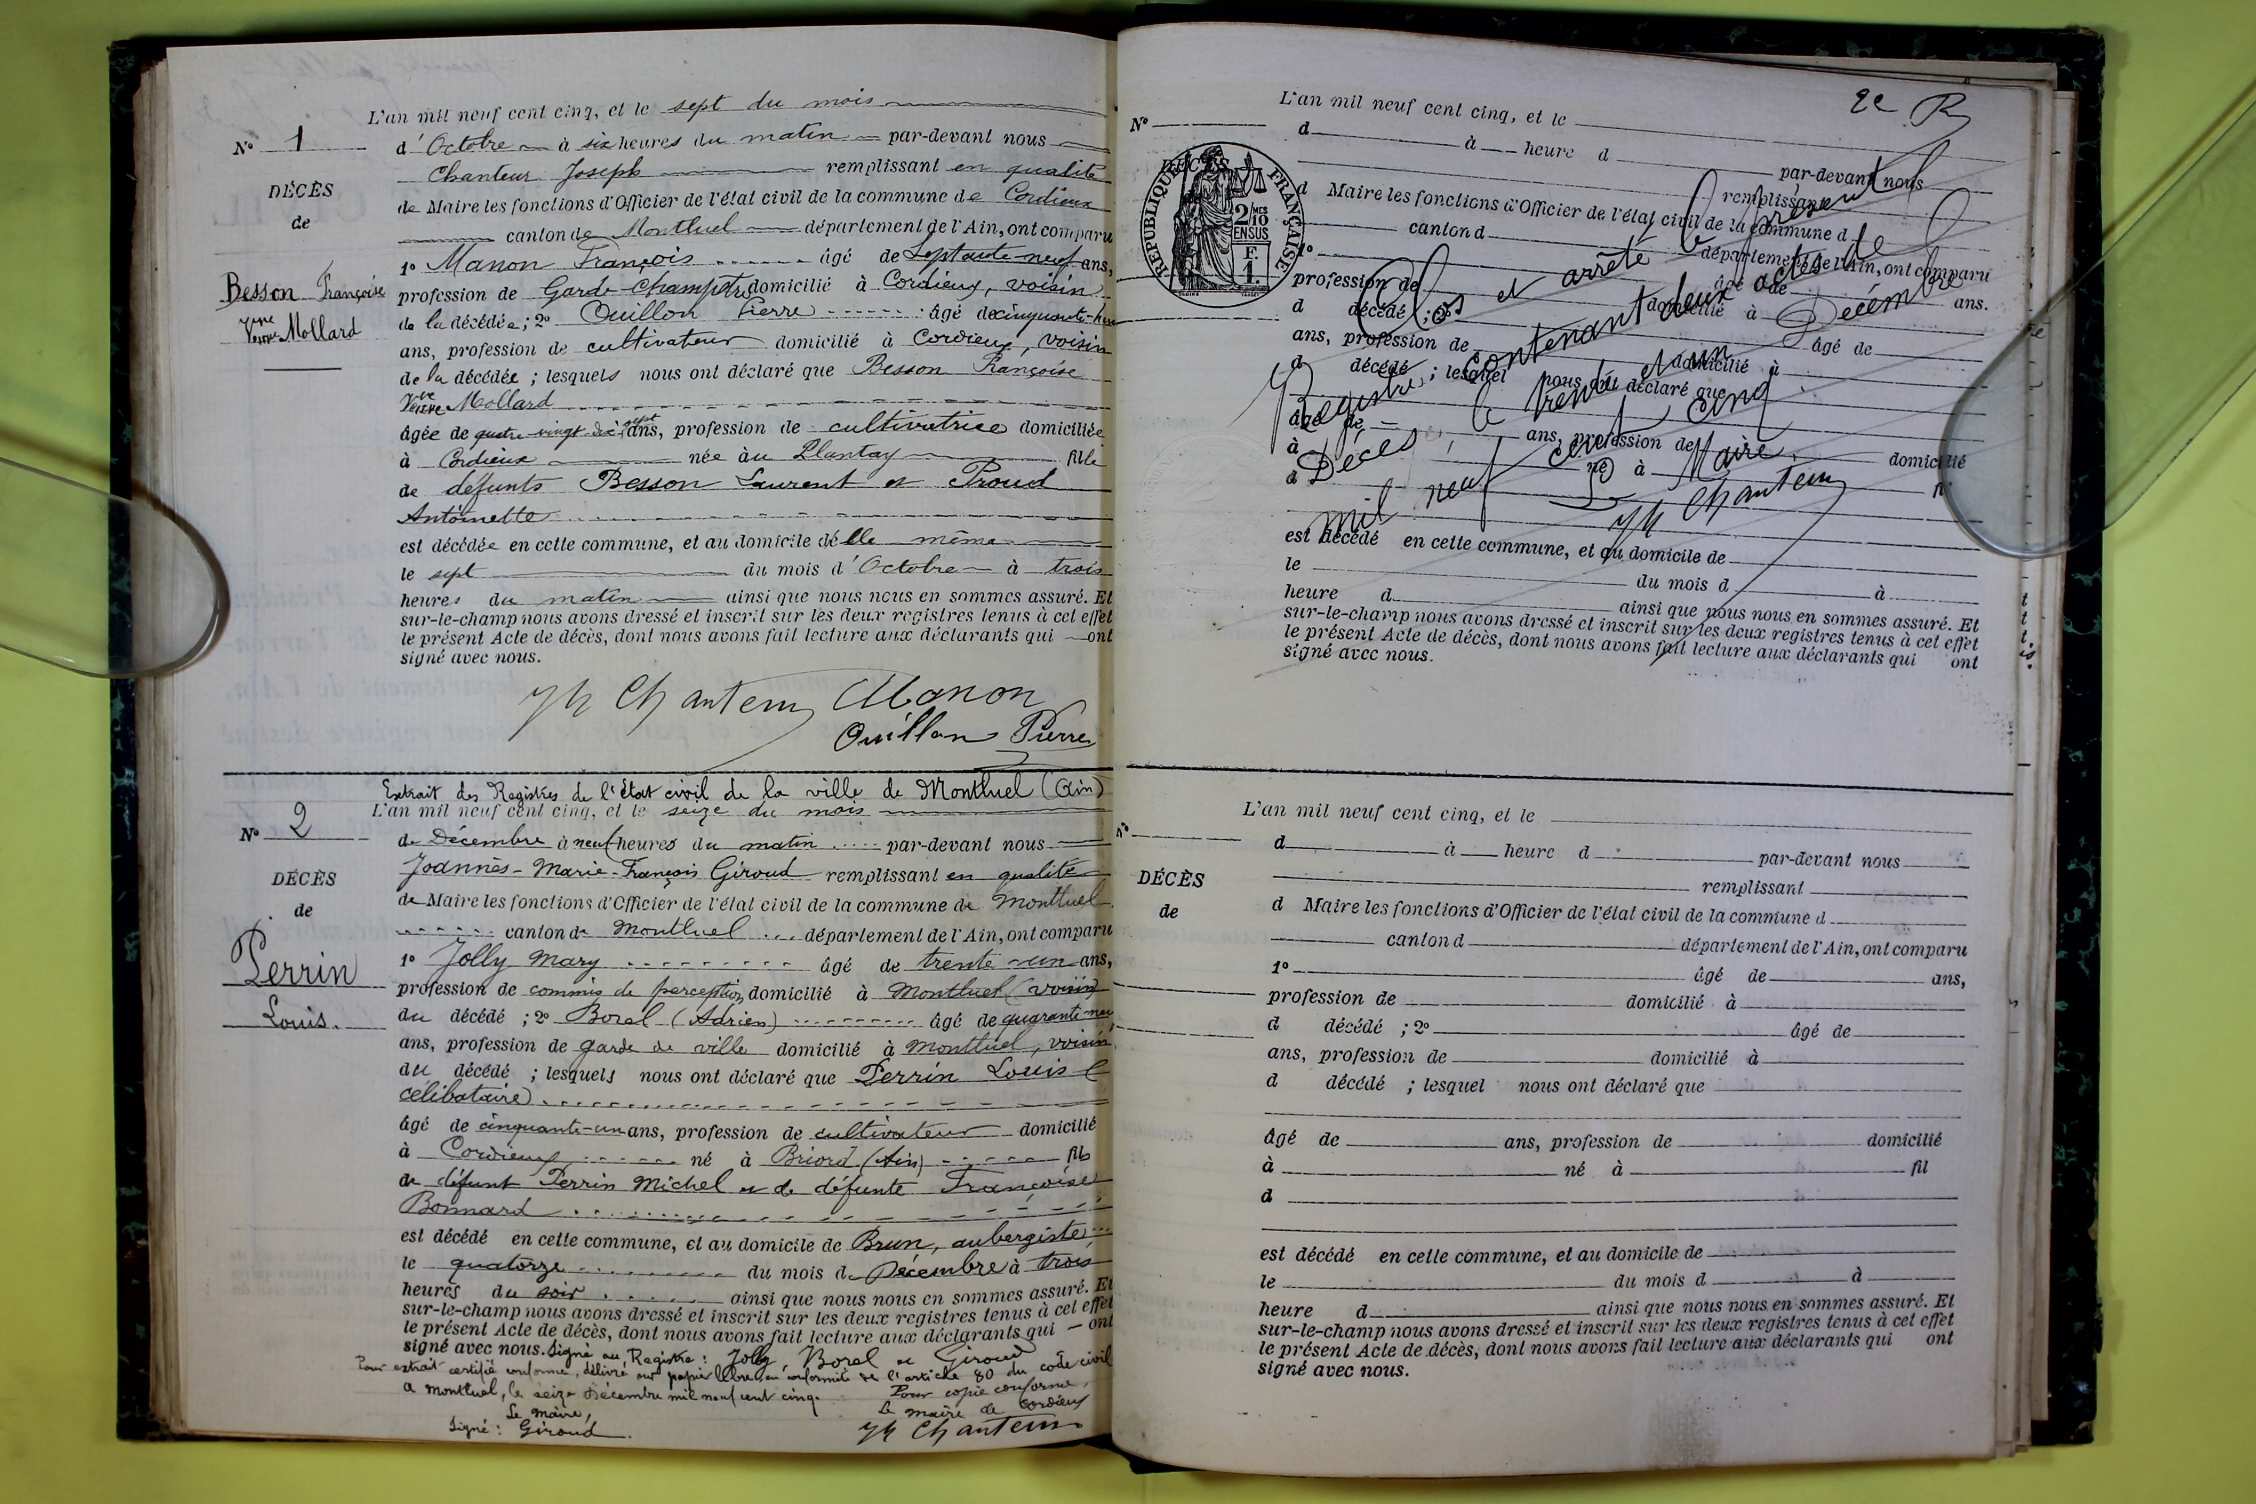 L'an mil neuf cent cinq, et le sept du mois
N° 1
d'Octobre à six heures du matin par-devant nous
Chanteur Joseph remplissant en qualité
DÉCÈS
de Maire les fonctions d'Officier de l'état civil de la commune de Cordieux
de
canton de Montluel département de l'Ain, ont comparu
1° Manon François âgé de Septante-neuf ans,
Besson Françoise
profession de Garde-Champêtre domicilié à Cordieux, voisin
Vve Mollard
de la décédée ; 2° Ouillon Pierre âgé de
ans, profession de cultivateur domicilié à Cordieux, voisin
de la décédée ; lesquels nous ont déclaré que Besson Françoise
Veuve Mollard
âgée de quatre-vingt-dix-sept ans, profession de cultivatrice domiciliée
à Cordieux née au Plantay fille
de défunts Besson Laurent et Proud
Antoinette
est décédée en cette commune, et au domicile d'elle même
le sept du mois d'Octobre à trois
heures du matin ainsi que nous nous en sommes assuré. Et
sur-le-champ nous avons dressé et inscrit sur les deux registres tenus à cet effet
le présent Acte de décès, dont nous avons fait lecture aux déclarants qui ont
signé avec nous.
Jh Chanteur Manon
Ouillon Pierre
Extrait des Registres de l'État civil de la ville de Montluel (Ain)
L'an mil neuf cent cinq, et le seize du mois
N° 2
de Décembre à neuf heures du matin par-devant nous
Joannès-Marie-François Giroud remplissant en qualité
DÉCÈS
de Maire les fonctions d'Officier de l'état civil de la commune de Montluel
de
canton de Montluel département de l'Ain, ont comparu
Perrin
1° Jolly Mary âgé de trente-un ans,
profession de commis de perception domicilié à Montluel (voisin)
Louis.
du décédé ; 2° Borel (Adrien) âgé de quarante-neuf
ans, profession de garde de ville domicilié à Montluel, voisin
du décédé ; lesquels nous ont déclaré que Perrin Louis
célibataire
âgé de cinquante-un ans, profession de cultivateur domicilié
à Cordieux né à Briord (Ain) fils
de défunt Perrin Michel et de défunte Françoise
Bonnard
est décédé en cette commune, et au domicile de Brun, aubergiste
le quatorze du mois de Décembre à trois
heures du soir ainsi que nous nous en sommes assuré. Et
sur-le-champ nous avons dressé et inscrit sur les deux registres tenus à cet effet
le présent Acte de décès, dont nous avons fait lecture aux déclarants qui ont
signé avec nous. Signé au Registre : Jolly, Borel et Giroud
Pour extrait certifié conforme, délivré sur papier libre en conformité de l'article 80 du code civil
A Montluel, le seize Décembre mil neuf cent cinq.
Pour copie conforme,
Le Maire,
Le maire de Cordieux
Signé : Giroud.
Jh Chanteur
2e R
L'an mil neuf cent cinq, et le
N°
d à heure d par-devant nous
remplissant
RÉPUBLIQUE FRANÇAISE
DÉCÈS
2/10MES
EN SUS
F.
1.
d Maire les fonctions d'Officier de l'état civil de la commune d
canton d département de l'Ain, ont comparu
1° âgé de ans.
profession de domicilié à
d décédé ; 2° âgé de
ans, profession de domicilié à
d décédé ; lesquel nous ont déclaré que
âgé de ans, profession de domicilié
à né à fil
d
est décédé en cette commune, et au domicile de
le du mois d à
heure d ainsi que nous nous en sommes assuré. Et
sur-le-champ nous avons dressé et inscrit sur les deux registres tenus à cet effet
le présent Acte de décès, dont nous avons fait lecture aux déclarants qui ont
signé avec nous.
Clos et arrêté le présent
Registre, contenant deux actes de
Décès, le trente et un Décembre
mil neuf cent cinq
Le Maire,
Jh Chanteur
L'an mil neuf cent cinq, et le
N°
d à heure d par-devant nous
remplissant
DÉCÈS
d Maire les fonctions d'Officier de l'état civil de la commune d
de
canton d département de l'Ain, ont comparu
1° âgé de ans,
profession de domicilié à
d décédé ; 2° âgé de
ans, profession de domicilié à
d décédé ; lesquel nous ont déclaré que
âgé de ans, profession de domicilié
à né à fil
d
est décédé en cette commune, et au domicile de
le du mois d à
heure d ainsi que nous nous en sommes assuré. Et
sur-le-champ nous avons dressé et inscrit sur les deux registres tenus à cet effet
le présent Acte de décès, dont nous avons fait lecture aux déclarants qui ont
signé avec nous.